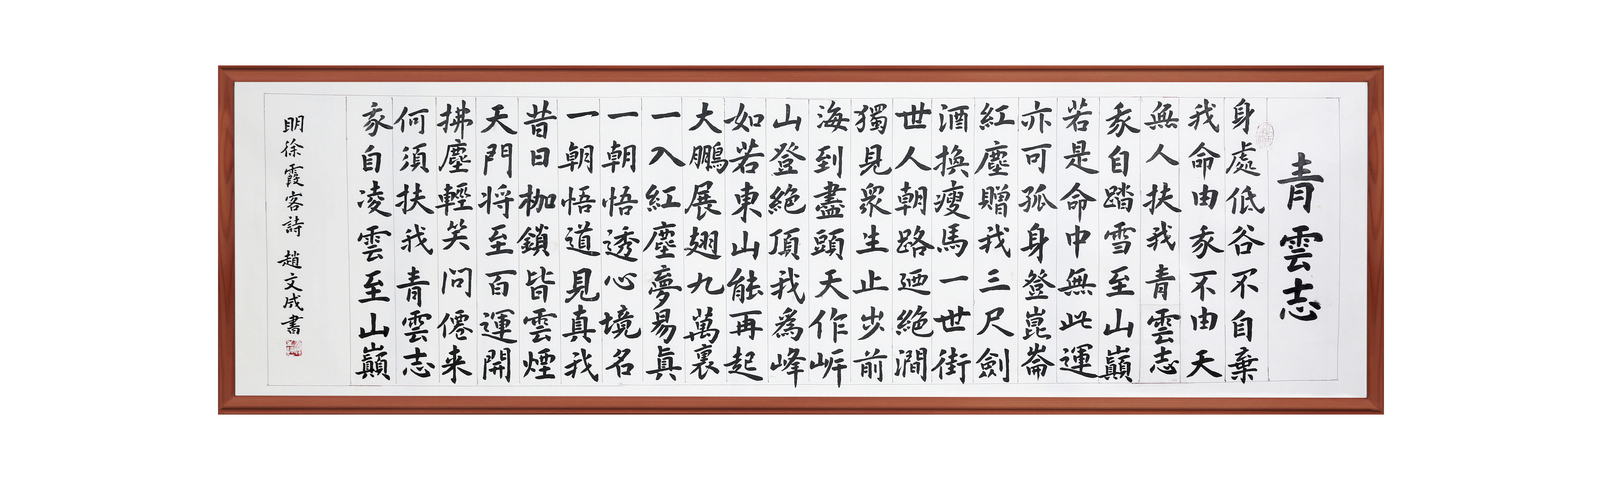 青雲志
身處低谷不自棄
我命由我不由天
無人扶我青雲志
我自踏雪至山巔
若是命中無此運
亦可孤身登崑崙
紅塵贈我三尺劍
酒換瘦馬一世街
世人朝路迺絕澗
獨見衆生止步前
海到盡頭天作岸
山登絕頂我為峰
如若東山能再起
大鵬展翅九萬裏
一入紅塵夢易真
一朝悟透心境名
一朝悟道見真我
昔日枷鎖皆雲煙
天門將至百運開
拂塵輕笑問僊来
何須扶我青雲志
我自凌雲至山巔
明徐霞客詩 趙文成書